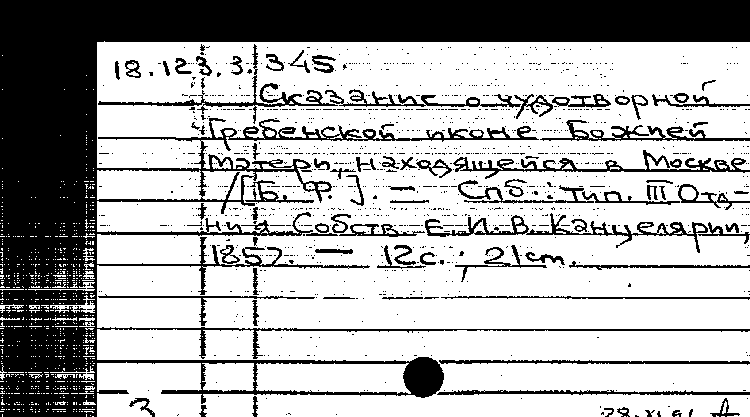 18.123.3.345.
Сказание о чудотворной
Гребенской иконе Божией
Матери, находящейся в Москве
/[Б. Ф.]. — Спб.: тип. III Отд-
ния Собств. Е. И. В. Канцелярии,
1857. — 12с. ; 21cm.
3